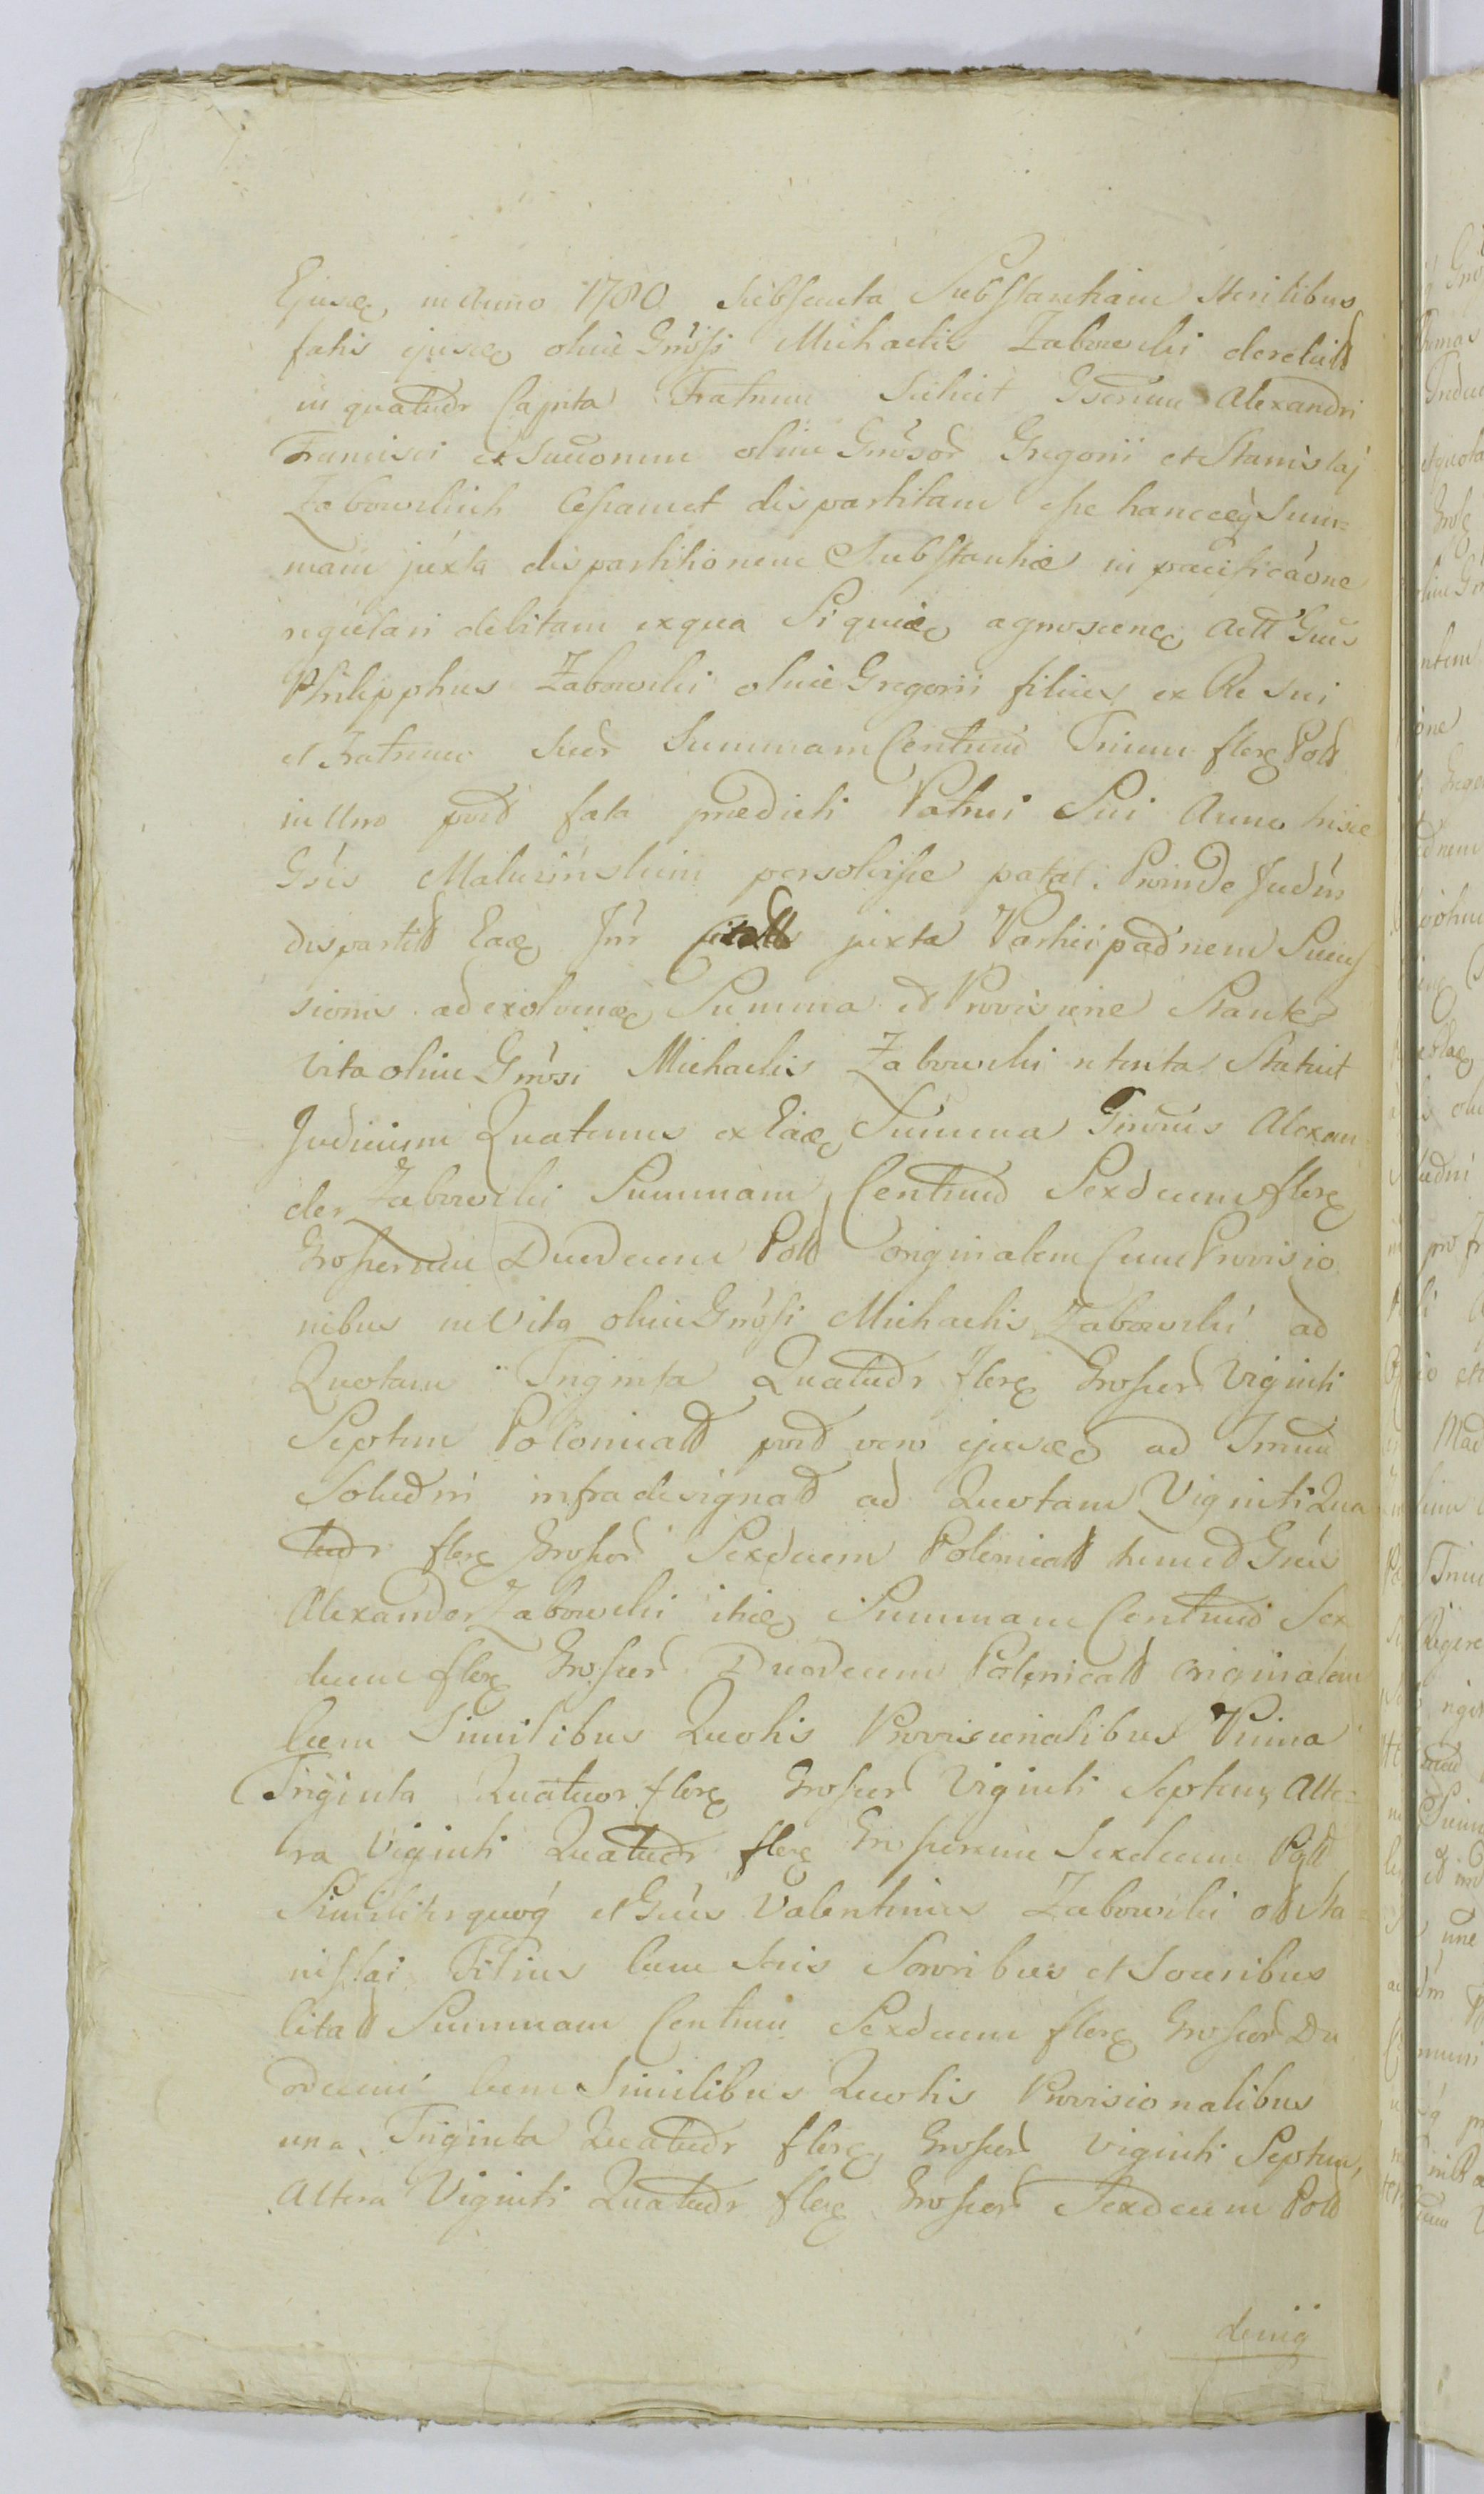 Ejusq, in Anno 1780 Subsecuta Substantiam Sterilibus
fatis ejusq olim Grossi Michaelis Zabowski derelictt
in quatuor Capita Fratrum Scilicet Gserum Alexandri
Francisci et Succorum olim Grosor Gregorii et Stanislaj
Zabowskich Cessamet dispartitam esse hancceq Sum=
mam juxta dispartitionem Substantiæ in pacificaone
regulari debitam exqua Si quidq agnoscenq Actt Gnus
Philipphus Zabowski olim Gregorii filius ex Re sui
et Fratrum Suor Summam Centum Trium flerq Poltt
in Uno post fata prædicti Patrui Sui Anno hisce
Gsis Malusinskim persolvisse patet. Proinde Judm
dispartitt Eaq Jur juxta Participaonem Succes
sionis ad exolvenq Summa et Provisione Stante
Vita olim Grosi Michaelis Zabowski retenta Statuit
Judicium Quatenus ex Eaq Summa Gnrus Alexan
der Zabowski Summam Centum Sexdecim flerq
Grosserum Duodecim Poltt originalem Cum Provisio
nibus in Vita olim Grosi Michaelis Zabowski ad
Quotam Triginta Quatuor flerq Grosser Viginti
Septem Polonicatt post vero ejusq ad Tmum
Soludni infra designatt ad Quotam Viginti Qua
tuor flerq Grosser Sexdecim Polonicatt tumet Gnus
Alexander Zabowski itiq Summam Centum Sex
decim flerq Grosser Duodecim Polonicatt originalem
Cum Similibus Quotis Provisionalibus Prima
Triginta Quatuor flerq Grosser Viginti Septem, Alte=
ra Viginti Quatuor flerq Grosserum Sexdecim Poltt
Similiterquoq et Gnus Valentinus Zabowski ol Sta=
nislai Filius Cum Suis Sororibus et Sociribus
Citatt Summam Centum Sexdecim flerq Grosser Du
odecim Cum Similibus Quotis Provisionalibus
una Triginta Quatuor flerq, Grosser Viginti Septem,
Altera Viginti Quatuor flerq Grosser Sexdecim Poltt
deniq